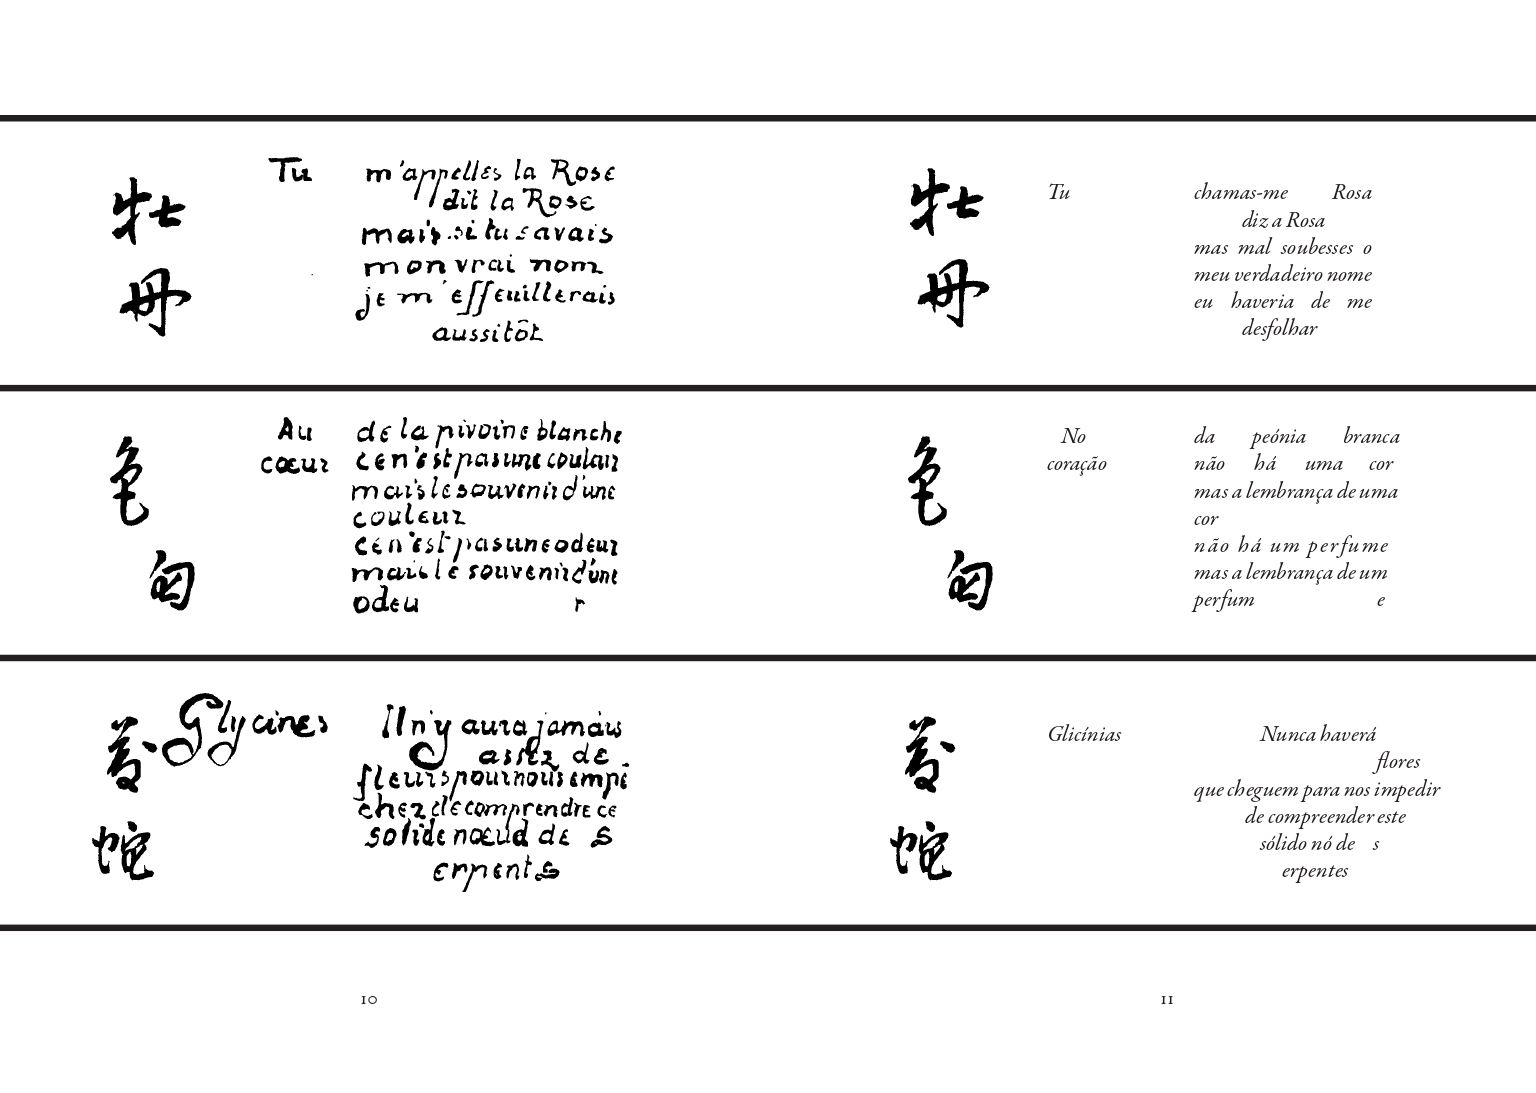 牡
Tu m'appelles la Rose
dit la Rose
mais si tu savais
mon vrai nom
je m'effeuillerais
aussitôt
色
匂
Au
cœur
de la pivoine blanche
ce n'est pas une couleur
mais le souvenir d'une
couleur
ce n'est pas une odeur
mais le souvenir d'une
odeu r
蛇
Glycines
Il n'y aura jamais
assez de
fleurs pour nous empê
cher de comprendre ce
solide nœud de s
erpents
10
牡
Tu chamas-me Rosa
diz a Rosa
mas mal soubesses o
meu verdadeiro nome
eu haveria de me
desfolhar
色
匂
No
coração
da peónia branca
não há uma cor
mas a lembrança de uma
cor
não há um perfume
mas a lembrança de um
perfum e
蛇
Glicínias
Nunca haverá
flores
que cheguem para nos impedir
de compreender este
sólido nó de s
erpentes
11